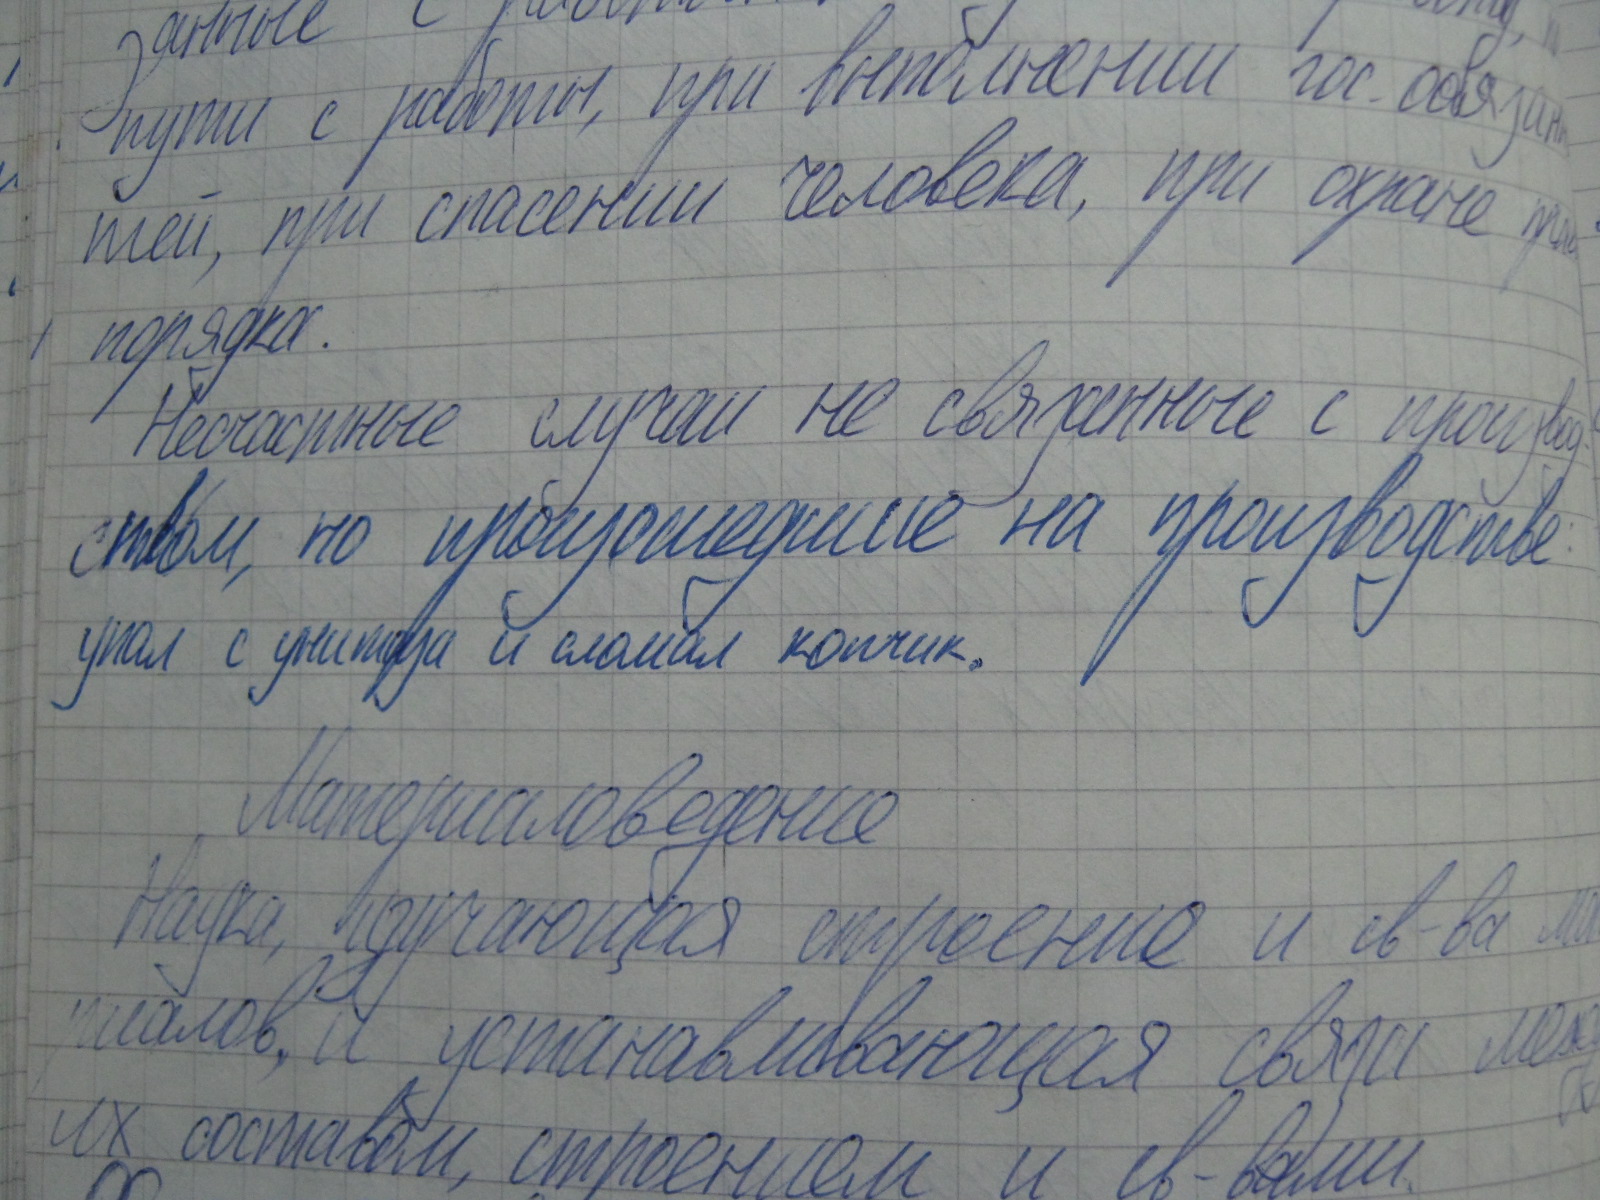 занные с работой
пути с работы, при выполнении гос. обязан
тей, при спасении человека, при охране
порядка.
Несчастные случаи не связанные с производ-
ством, но произошедшие на производстве:
упал с унитаза и сломал копчик.
Материаловедение
Наука, изучающая строение и св-ва ма
риалов, и устанавливающая связи меж
их составом, строением и св-вами.